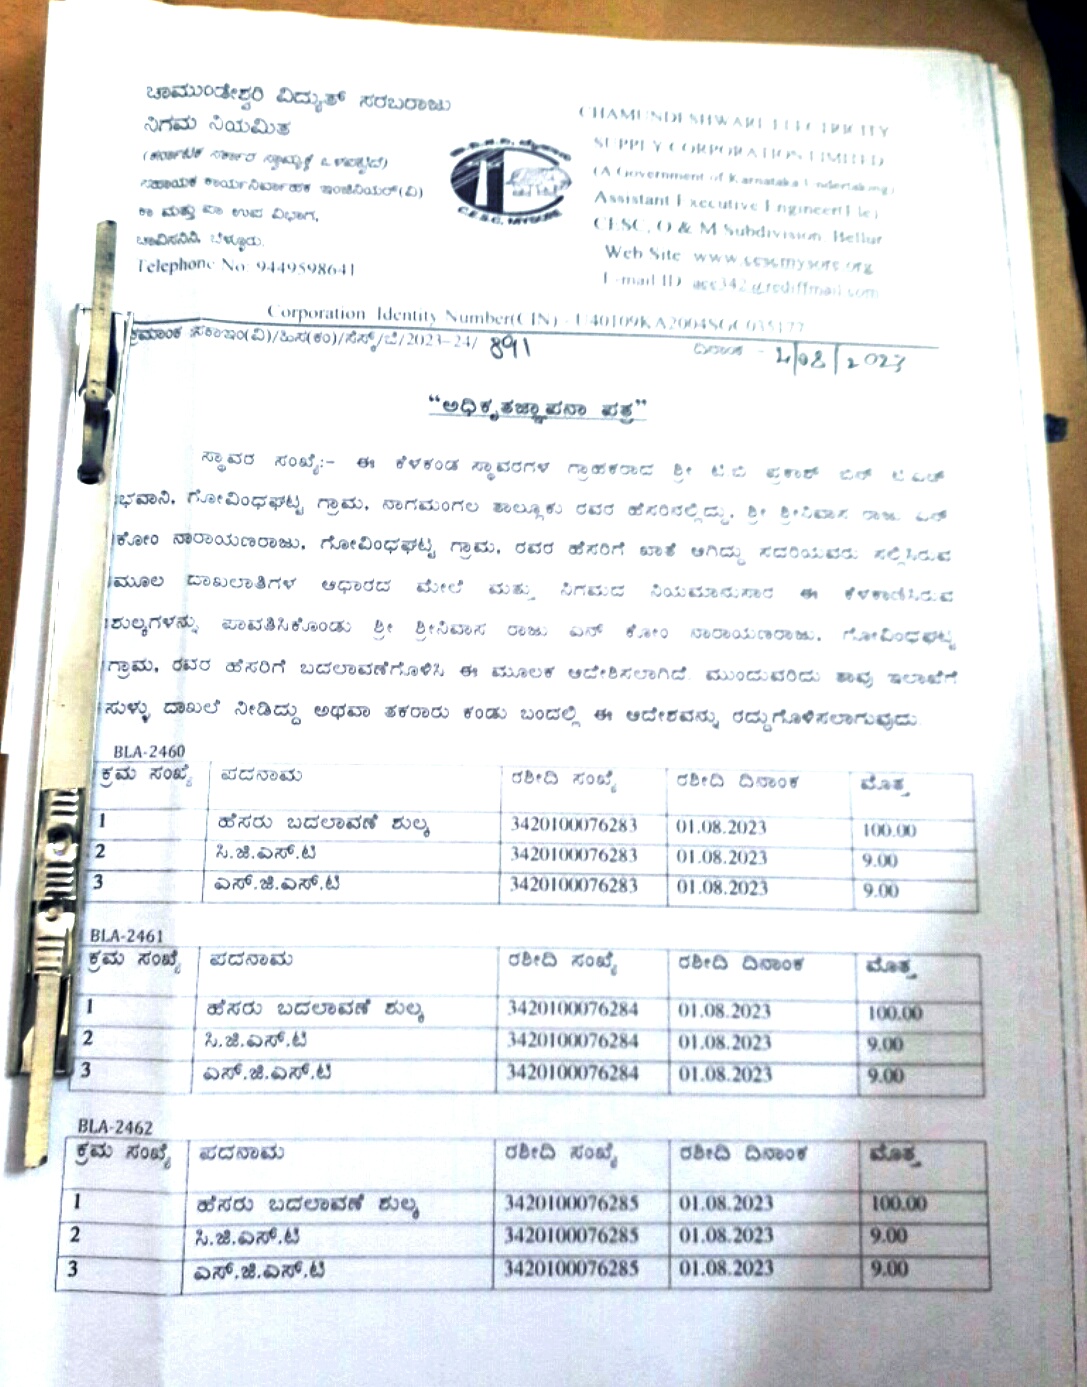 ಚಾಮುಂಡೇಶ್ವರಿ ವಿದ್ಯುತ್ ಸರಬರಾಜು
ನಿಗಮ ನಿಯಮಿತ
(ಕರ್ನಾಟಕ ಸರ್ಕಾರ ಸ್ವಾಮ್ಯಕ್ಕೆ ಒಳಪಟ್ಟಿದೆ)
ಸಹಾಯಕ ಕಾರ್ಯನಿರ್ವಾಹಕ ಇಂಜಿನಿಯರ್(ವಿ)
ಕಾ ಮತ್ತು ಪಾ ಉಪ ವಿಭಾಗ,
ಚಾವಿಸನಿನಿ, ಬೆಳ್ಳೂರು.
Telephone No: 9449598641
C.E.S.C, MYSORE
CHAMUNDESHWARI ELECTRICITY
SUPPLY CORPORATION LIMITED
(A Government of Karnataka Undertaking)
Assistant Executive Engineer(Ele)
CESC, O & M Subdivision, Bellur
Web Site: www.cescmysore.org
E-mail ID: aee342@rediffmail.com
Corporation Identity Number(CIN) - U40109KA2004SGC035177
ಕ್ರಮಾಂಕ :ಸಕಾಇಂ(ವಿ)/ಹಿಸ(ಕಂ)/ಸೆಸ್ಕ್/ಬೆ/2023-24/ 891
ದಿನಾಂಕ - 4/08/2023
“ಅಧಿಕೃತಜ್ಞಾಪನಾ ಪತ್ರ”
ಸ್ಥಾವರ ಸಂಖ್ಯೆ:- ಈ ಕೆಳಕಂಡ ಸ್ಥಾವರಗಳ ಗ್ರಾಹಕರಾದ ಶ್ರೀ ಟಿ ಬಿ ಪ್ರಕಾಶ್ ಬಿನ್
ಭವಾನಿ, ಗೋವಿಂಧಘಟ್ಟ ಗ್ರಾಮ, ನಾಗಮಂಗಲ ತಾಲ್ಲೂಕು ರವರ ಹೆಸರಿನಲ್ಲಿದ್ದು, ಶ್ರೀ ಶ್ರೀನಿವಾಸ ರಾಜು ಎನ್
ಕೋಂ ನಾರಾಯಣರಾಜು, ಗೋವಿಂಧಘಟ್ಟ ಗ್ರಾಮ, ರವರ ಹೆಸರಿಗೆ ಖಾತೆ ಆಗಿದ್ದು ಸದರಿಯವರು ಸಲ್ಲಿಸಿರುವ
ಮೂಲ ದಾಖಲಾತಿಗಳ ಆಧಾರದ ಮೇಲೆ ಮತ್ತು ನಿಗಮದ ನಿಯಮಾನುಸಾರ ಈ ಕೆಳಕಾಣಿಸಿರುವ
ಶುಲ್ಕಗಳನ್ನು ಪಾವತಿಸಿಕೊಂಡು ಶ್ರೀ ಶ್ರೀನಿವಾಸ ರಾಜು ಎನ್ ಕೋಂ ನಾರಾಯಣರಾಜು, ಗೋವಿಂಧಘಟ್ಟ
ಗ್ರಾಮ, ರವರ ಹೆಸರಿಗೆ ಬದಲಾವಣೆಗೊಳಿಸಿ ಈ ಮೂಲಕ ಆದೇಶಿಸಲಾಗಿದೆ. ಮುಂದುವರಿದು ತಾವು ಇಲಾಖೆಗೆ
ಸುಳ್ಳು ದಾಖಲೆ ನೀಡಿದ್ದು ಅಥವಾ ತಕರಾರು ಕಂಡು ಬಂದಲ್ಲಿ ಈ ಆದೇಶವನ್ನು ರದ್ದುಗೊಳಿಸಲಾಗುವುದು.
BLA-2460
ಕ್ರಮ ಸಂಖ್ಯೆ ಪದನಾಮ ರಶೀದಿ ಸಂಖ್ಯೆ ರಶೀದಿ ದಿನಾಂಕ ಮೊತ್ತ
1 ಹೆಸರು ಬದಲಾವಣೆ ಶುಲ್ಕ 3420100076283 01.08.2023 100.00
2 ಸಿ.ಜಿ.ಎಸ್.ಟಿ 3420100076283 01.08.2023 9.00
3 ಎಸ್.ಜಿ.ಎಸ್.ಟಿ 3420100076283 01.08.2023 9.00
BLA-2461
ಕ್ರಮ ಸಂಖ್ಯೆ ಪದನಾಮ ರಶೀದಿ ಸಂಖ್ಯೆ ರಶೀದಿ ದಿನಾಂಕ ಮೊತ್ತ
1 ಹೆಸರು ಬದಲಾವಣೆ ಶುಲ್ಕ 3420100076284 01.08.2023 100.00
2 ಸಿ.ಜಿ.ಎಸ್.ಟಿ 3420100076284 01.08.2023 9.00
3 ಎಸ್.ಜಿ.ಎಸ್.ಟಿ 3420100076284 01.08.2023 9.00
BLA-2462
ಕ್ರಮ ಸಂಖ್ಯೆ ಪದನಾಮ ರಶೀದಿ ಸಂಖ್ಯೆ ರಶೀದಿ ದಿನಾಂಕ ಮೊತ್ತ
1 ಹೆಸರು ಬದಲಾವಣೆ ಶುಲ್ಕ 3420100076285 01.08.2023 100.00
2 ಸಿ.ಜಿ.ಎಸ್.ಟಿ 3420100076285 01.08.2023 9.00
3 ಎಸ್.ಜಿ.ಎಸ್.ಟಿ 3420100076285 01.08.2023 9.00